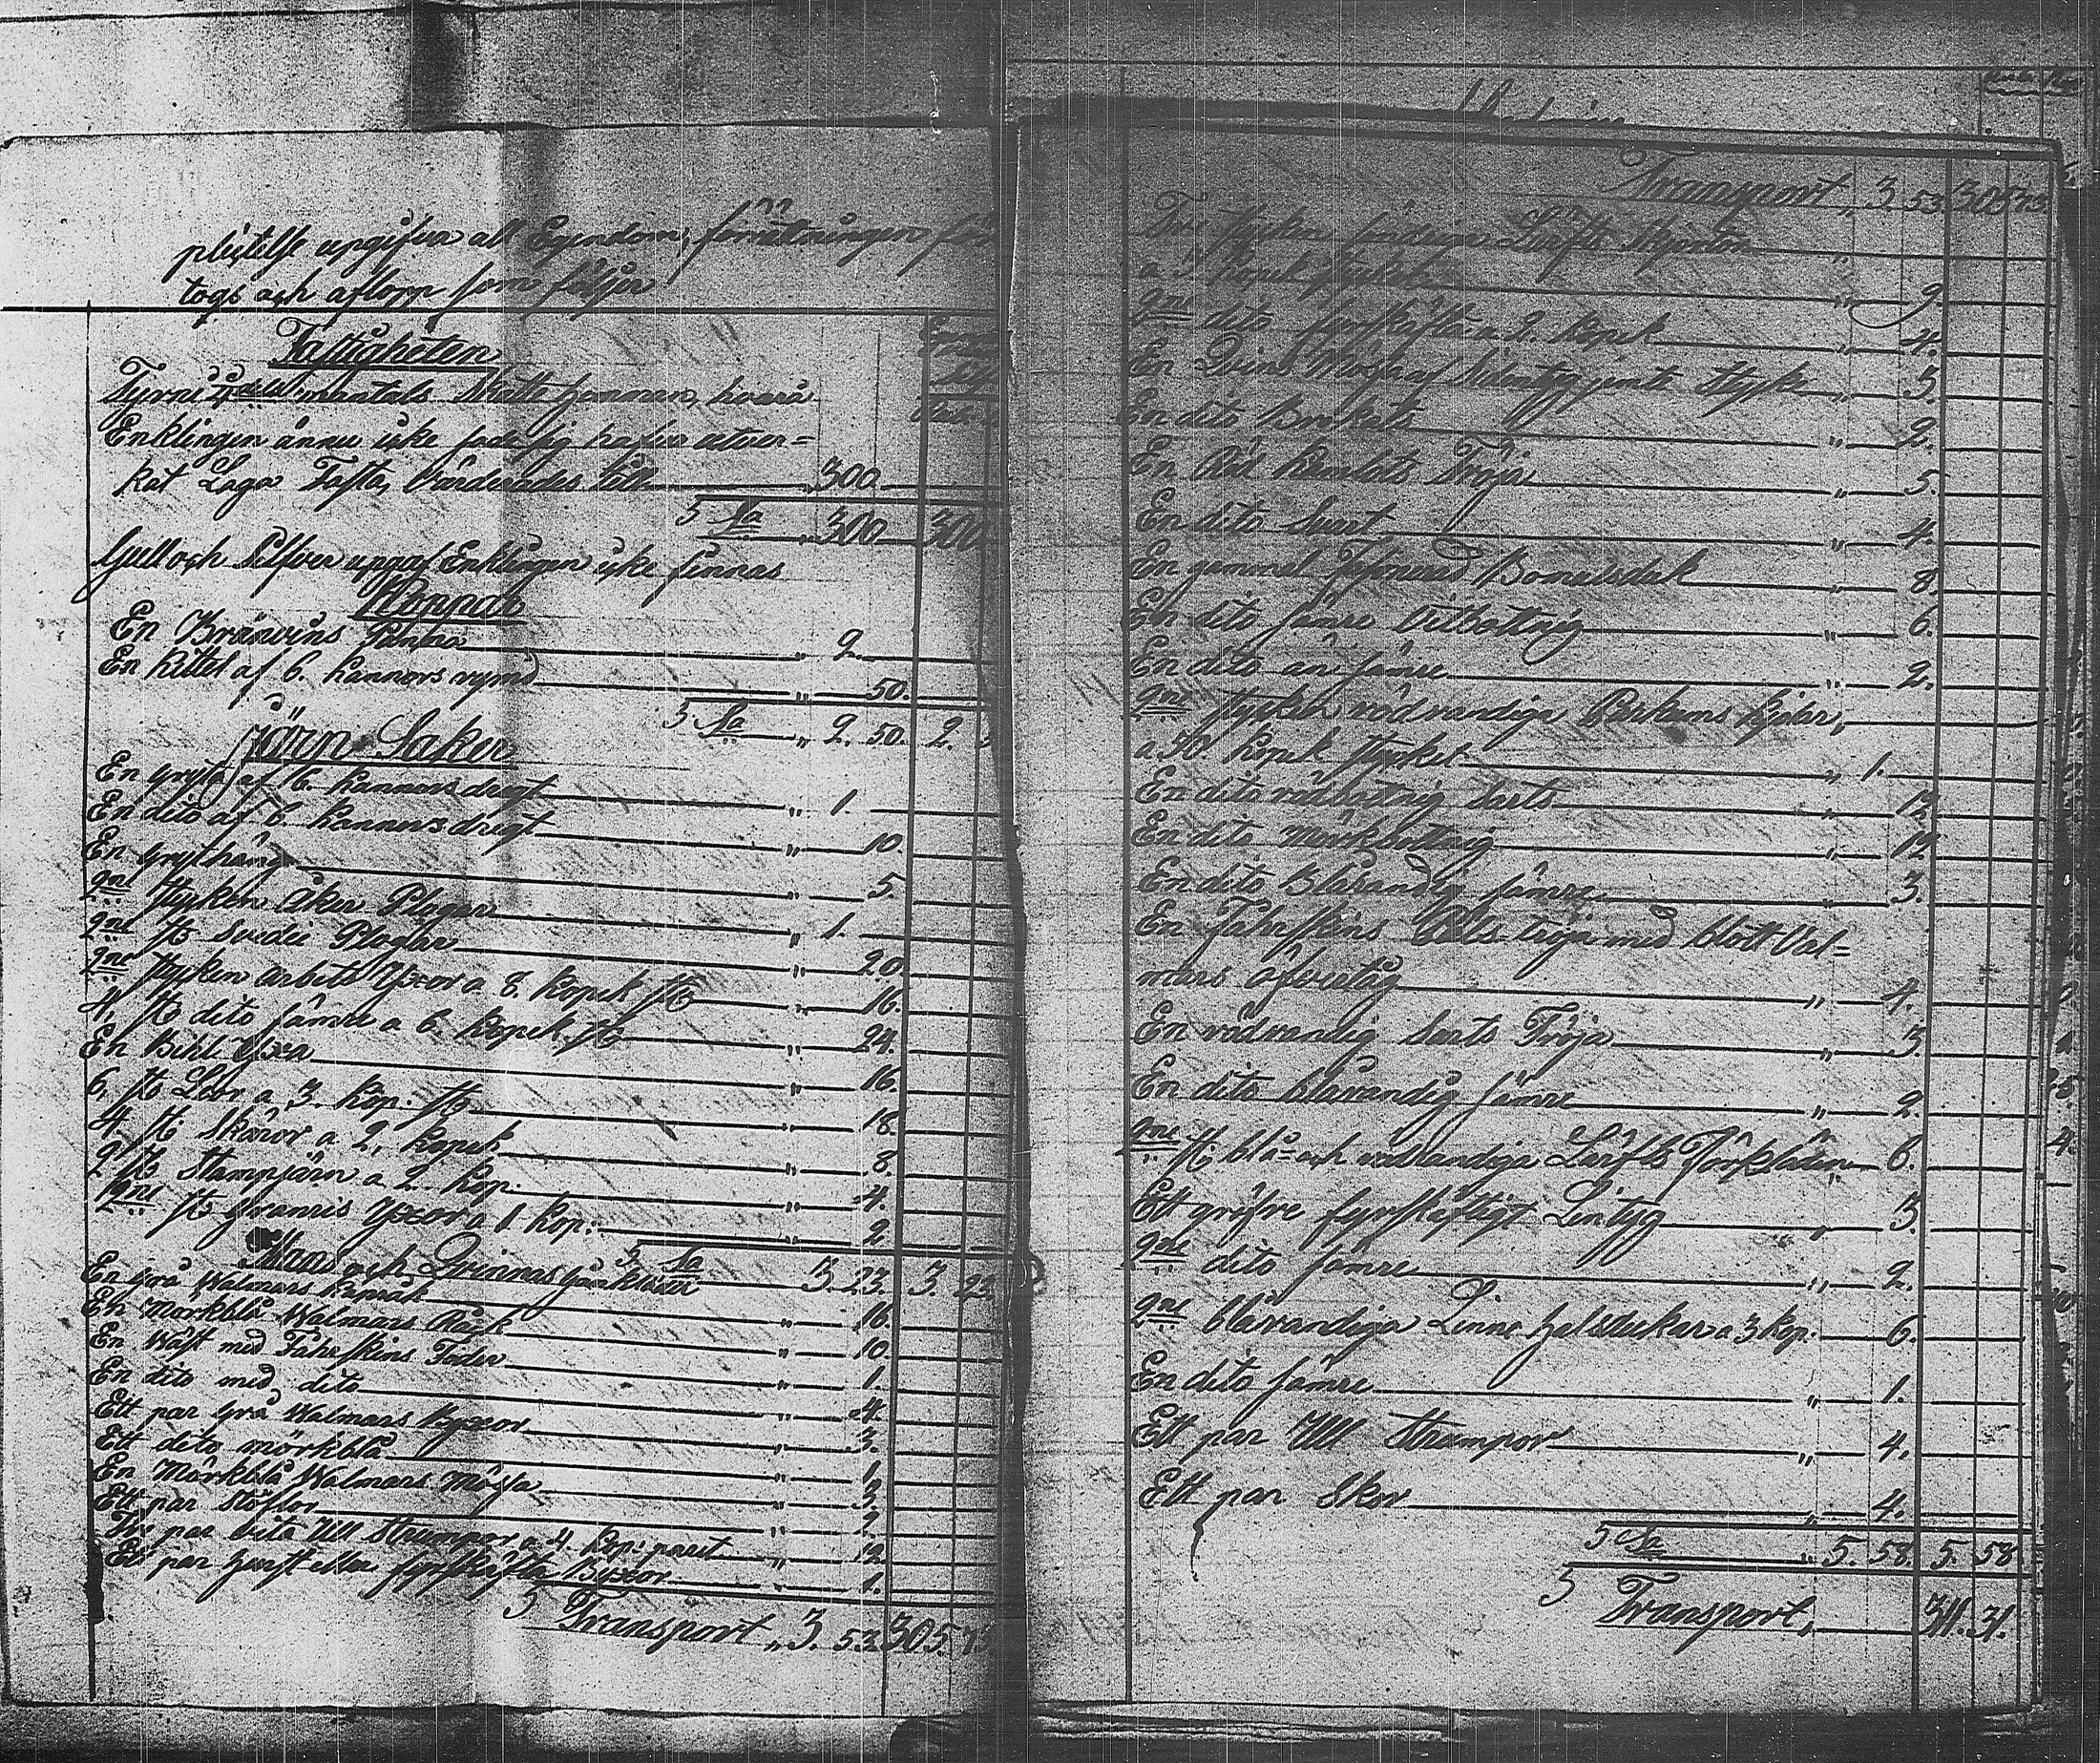 upgifva all Egendom, förrätningen för
togs och aflopp som följer
Fastigheten
mantals Skatte hemman, hvarå
Enklingen ännu icke hafver utver=
kat Laga Fasta, Värderades till 300
S Sa 300 300
Gull och Silfver upgaf Enklingen icke finnas
Koppar
En Bränvins Panna „ 2
En kittel af 6. kannors rymd „ 50.
S Sa „ 2. 50. 2.
Jörn Saker
En gryta af 6. kannors dregt „ 1.
En dito af 6. kannors dregt „ 10
En gryt häng „ 5.
2ne stycken åker Plogar „ 1.
2ne st svedie Plogar „ 20.
2ne stycken arbets Yxor a 8. kopek st „ 16.
4, st dito sämre a 6. kopek st „ 24.
En Bihl Yxa „ 16.
6, st Lior a 3. kop: st „ 18.
4 st Skäror a 2, kopek „ 8.
2 st Stampjärn a 2. kop. „ 4.
2ne st granris Yxor a 1 kop: „ 2
S Sa 3. 23. 3. 23
Mans och Qvinnas gångkläder
En grå Walmars kapråk „ 16.
En Mörkblå Walmars Råck „ 10.
En Wäst med Fåhrskins Foder „ 1.
En dito med dito „ 4.
Ett par grå Walmars Byxor „ 3.
Ett dito mörkblå „ 1.
En Mörkblå Walmars Mössa
Ett par stöflor „ 2.
Tre par vita Ull Strumpor a 4. kop: paret „ 12
Ett par fyrskäfta Byxor „ 1.
S Transport „ 3. 53 305.
Transport, „ 3. 53 305 73
Tre stycken Lärfts Skjortor
a 3 kopek stycket „ 9
2ne dito fyrskäfta a 2. kopek „ 4.
En Qvins Mössa af Sidentyg jemte Stycke „ 5.
En dito Brokets „ 2.
En Röd kamlots Tröja „ 5.
En dito Svart „ 4.
En gammal med Bomulsduk „ 8
En dito sämre „ 6.
En dito än sämre „ 2.
2ne stycken rödrandiga Parkums kjolar,
a 50. kopek stycket „ 1.
En dito rödbottnig Sarts „ 12
En dito Mörkbottnig „ 12
En dito Blårandig sämre „ 3.
En Fåhrskins Pels tröja med blått Val=
mars öfvertåg „ 4.
En rödrandig Sarts Tröja „ 3.
En dito blårandig sämre „ 2
2ne st blå- och rödrandiga Lärfts Förkläden 6.
Ett gröfre fyrskäftigt Lintyg „ 3.
2ne dito sämre „ 2.
2ne blårandiga Linne halsdukar a 3 kop. 6.
En dito sämre „ 1.
Ett par Ull Strumpor „ 4.
Ett par Skor „ 4.
S Sa „ 5. 58. 5. 58
S Transport, 311. 31.